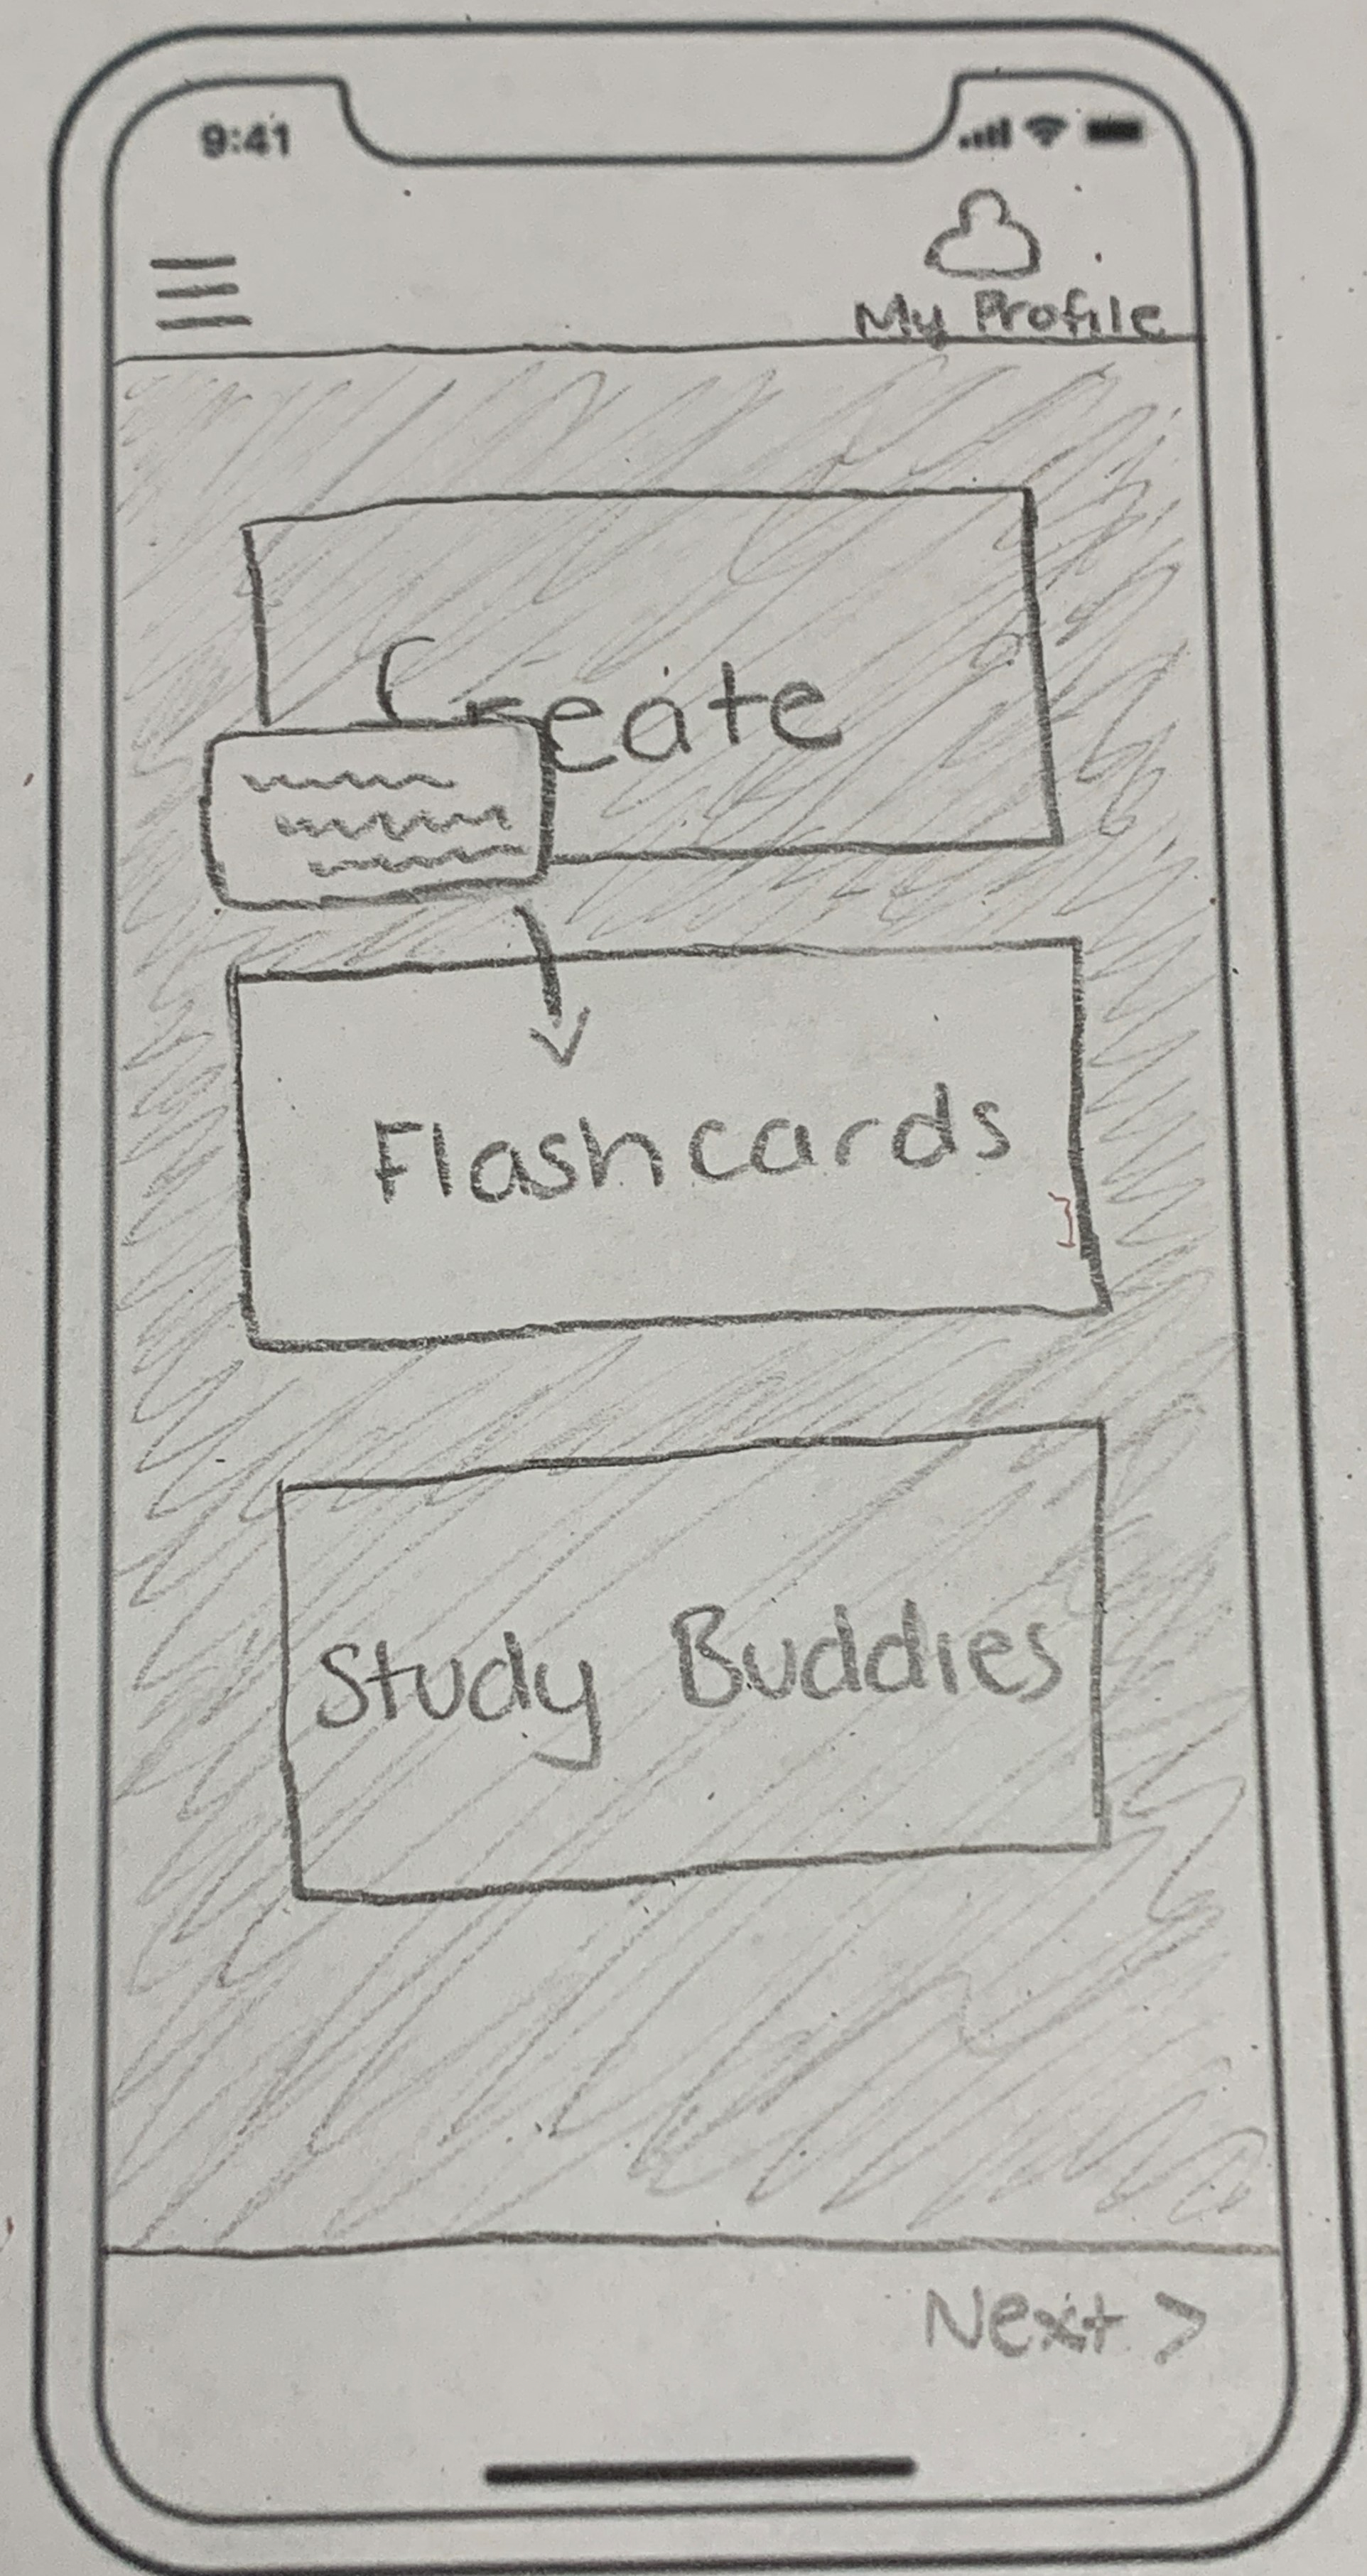 9:41
My Profile
Create
Flashcards
Study Buddies
Next >